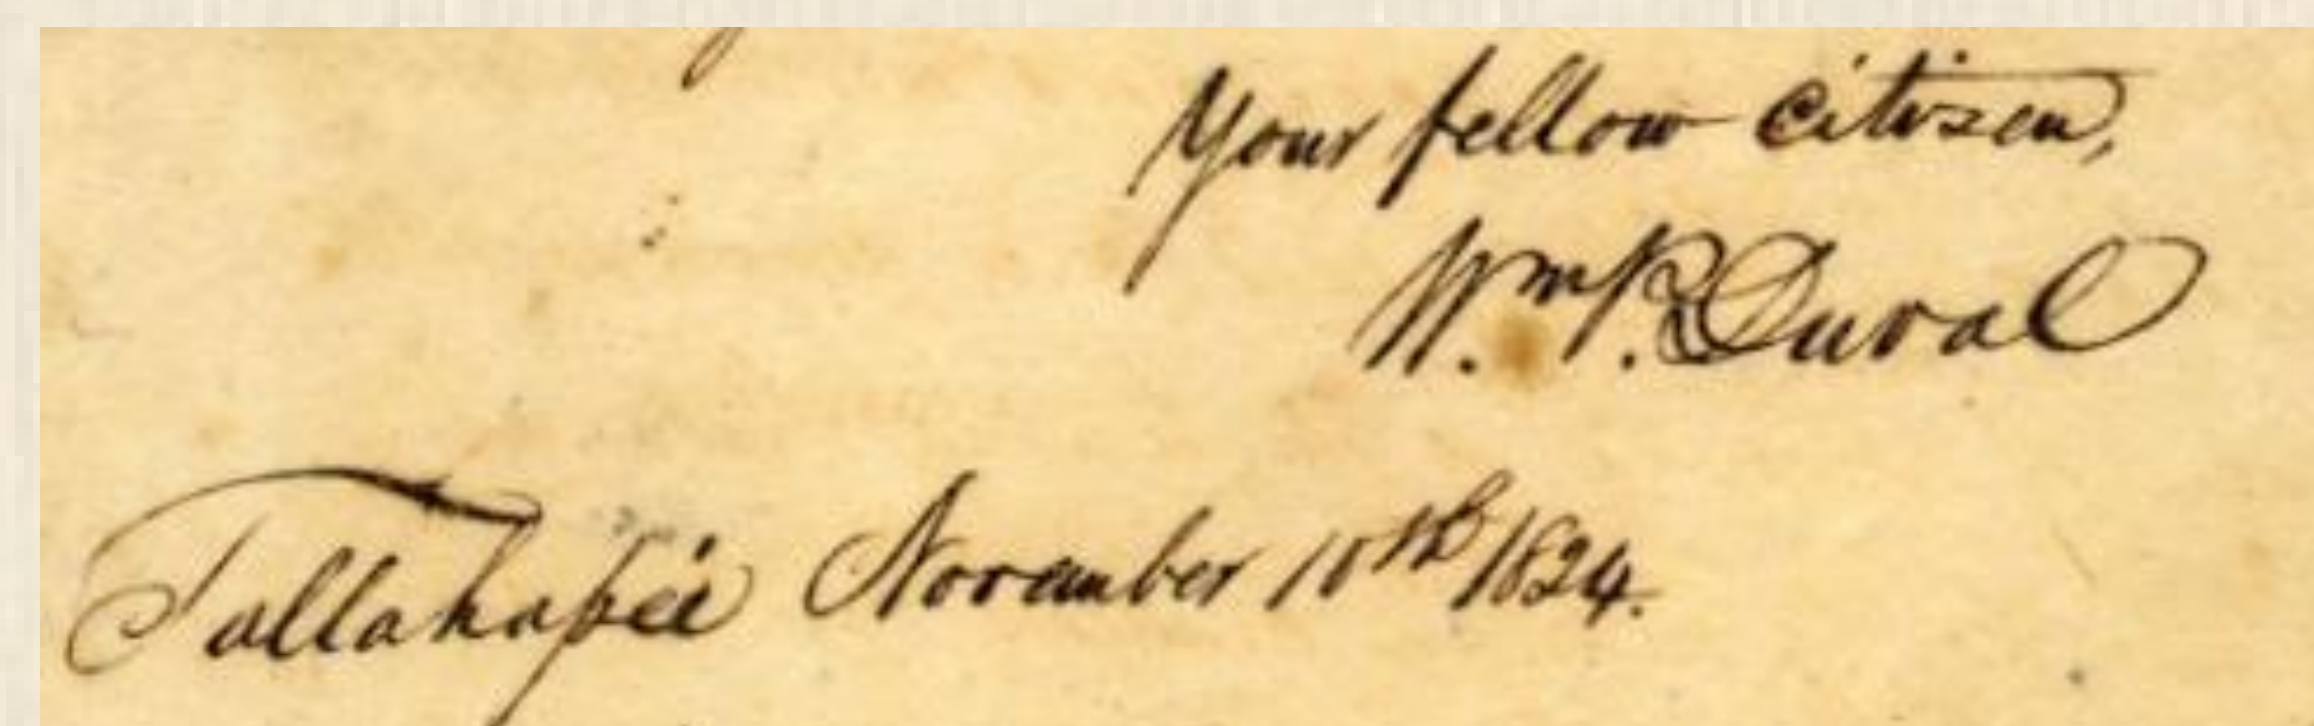 Your fellow citizen,
Wm. P. Duval
Tallahassee November 10th 1824.